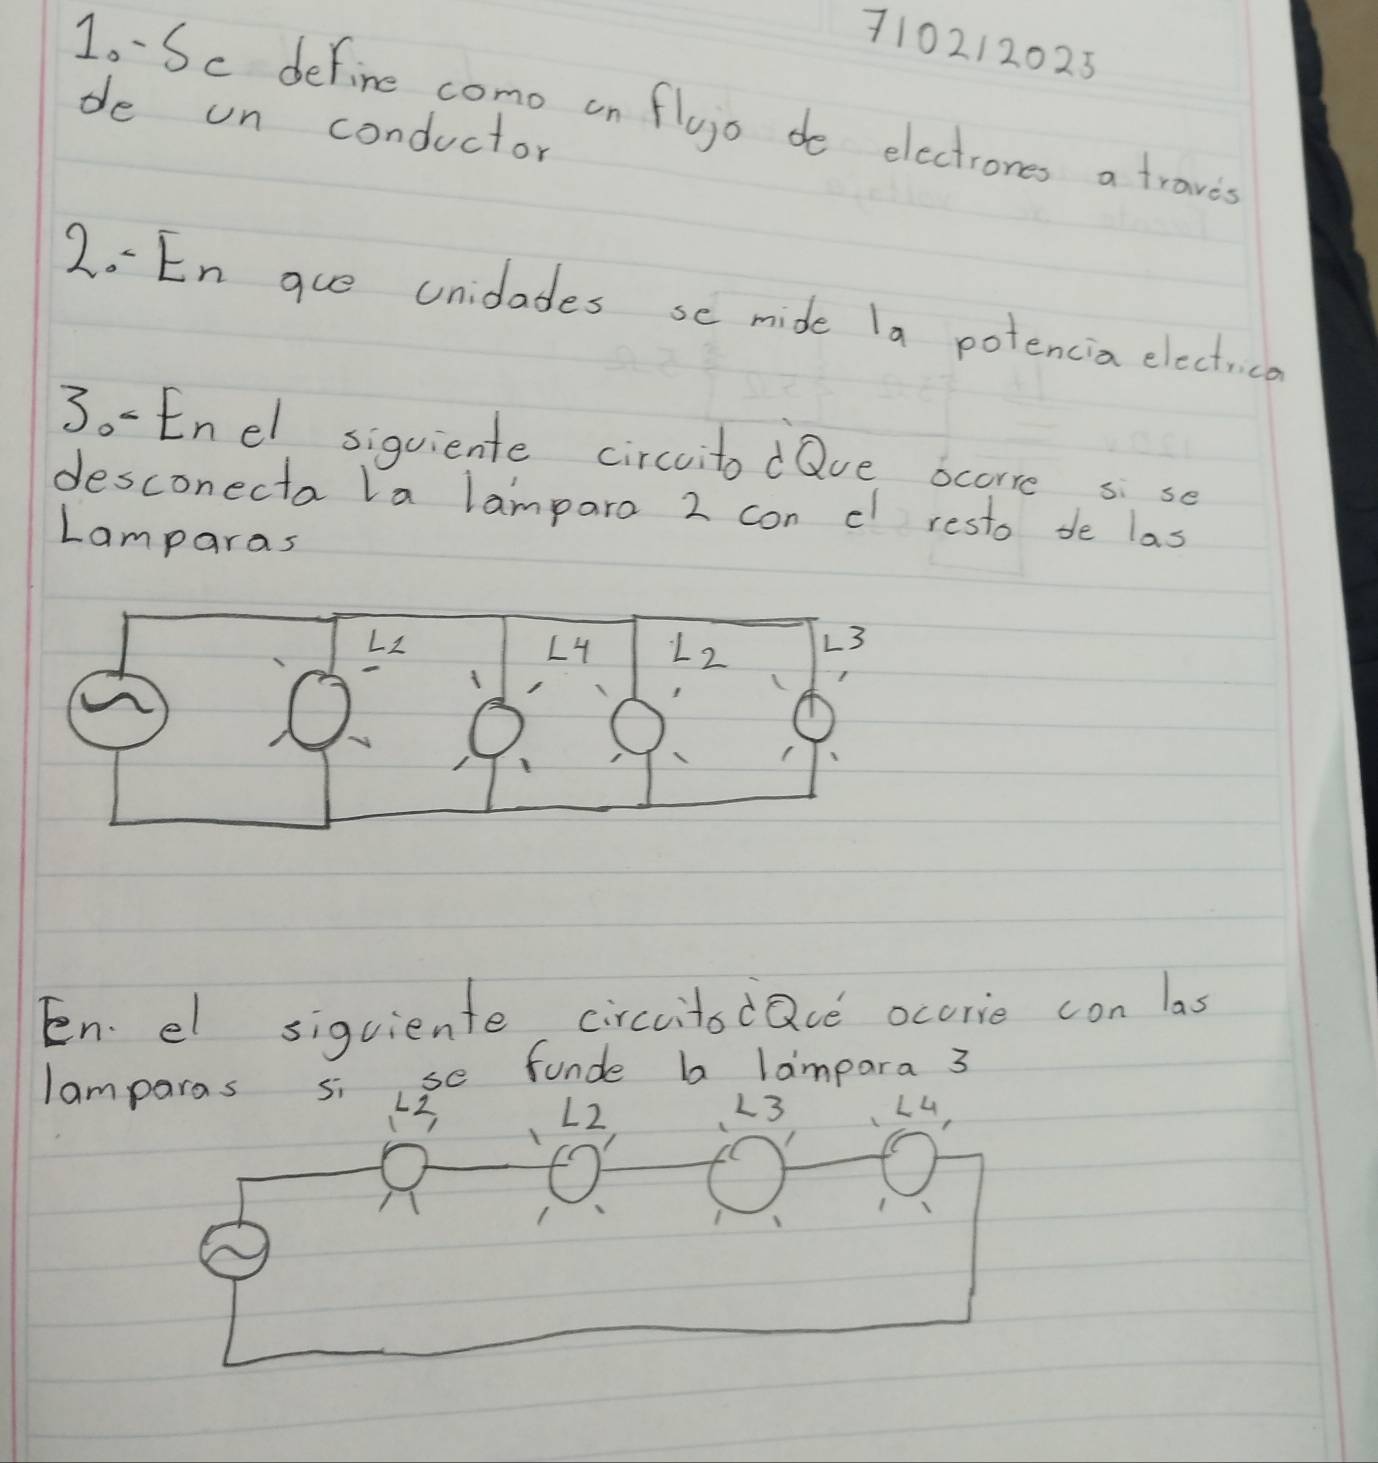 710212025
1.-Se define como un flujo de electrones a través
de un conductor
2.-En que unidades se mide la potencia electrica
3.-En el siguiente circuito ¿Que ocurre si se
desconecta la lámpara 2 con el resto de las
Lamparas
L1 L4 L2 L3
En el siguiente circuito ¿Qué ocurre con las
lamparas si se funde la lámpara 3
L1 L2 L3 L4